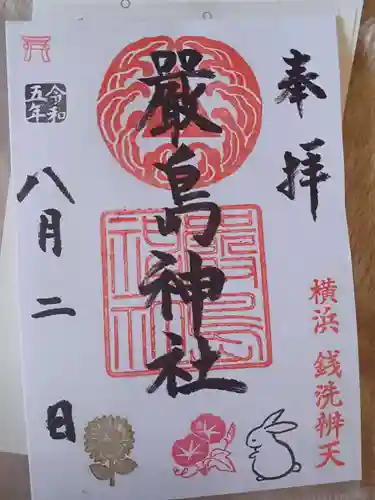 奉拝
横浜 銭洗辨天
嚴島神社
令和
五年
八月二日
嚴島
神社